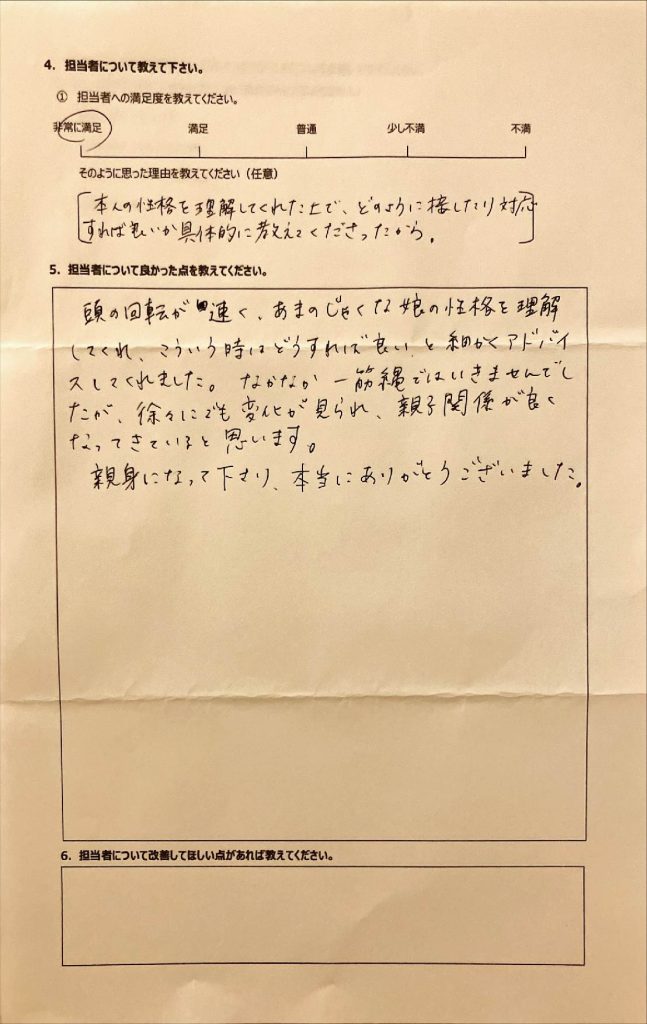 4. 担当者について教えて下さい。
① 担当者への満足度を教えてください。
非常に満足 満足 普通 少し不満 不満
そのように思った理由を教えてください（任意）
本人の性格を理解してくれた上で、どのように接したり対応
すれば良いか具体的に教えてくださったから。
5. 担当者について良かった点を教えてください。
頭の回転が速く、あまのじゃくな娘の性格を理解
してくれ、こういう時はどうすれば良い、と細かくアドバイ
スしてくれました。なかなか一筋縄ではいきませんでし
たが、徐々にでも変化が見られ、親子関係が良く
なってきていると思います。
親身になって下さり、本当にありがとうございました。
6. 担当者について改善してほしい点があれば教えてください。